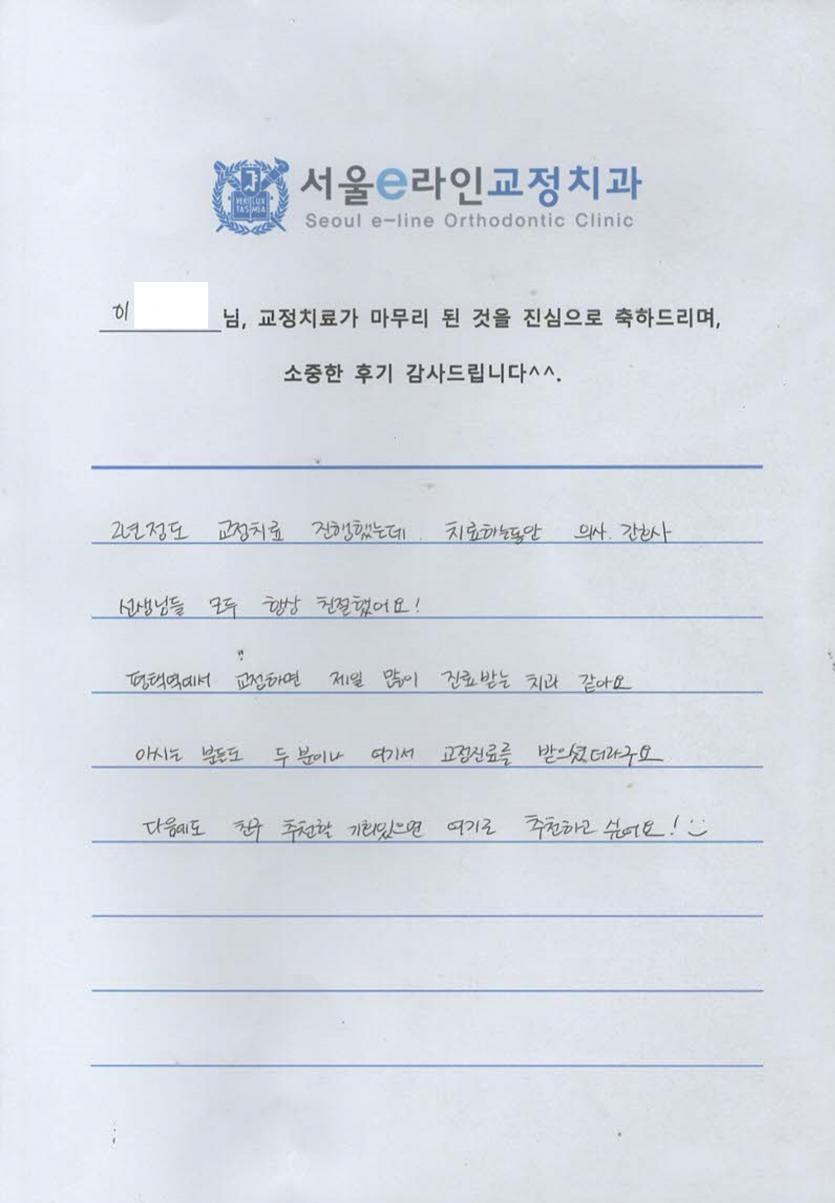 서울e라인교정치과
Seoul e-line Orthodontic Clinic
VERI LUX
TAS MEA
이 님, 교정치료가 마무리 된 것을 진심으로 축하드리며,
소중한 후기 감사드립니다^^.
2년정도 교정치료 진행했는데. 치료하는동안 의사. 간호사
선생님들 모두 항상 친절했어요!
평택역에서 교정하면 제일 많이 진료받는 치과 같아요
아시는 분들도 두 분이나 여기서 교정진료를 받으셨더라구요
다음에도 친구 추천할 기회있으면 여기로 추천하고 싶어요! :)